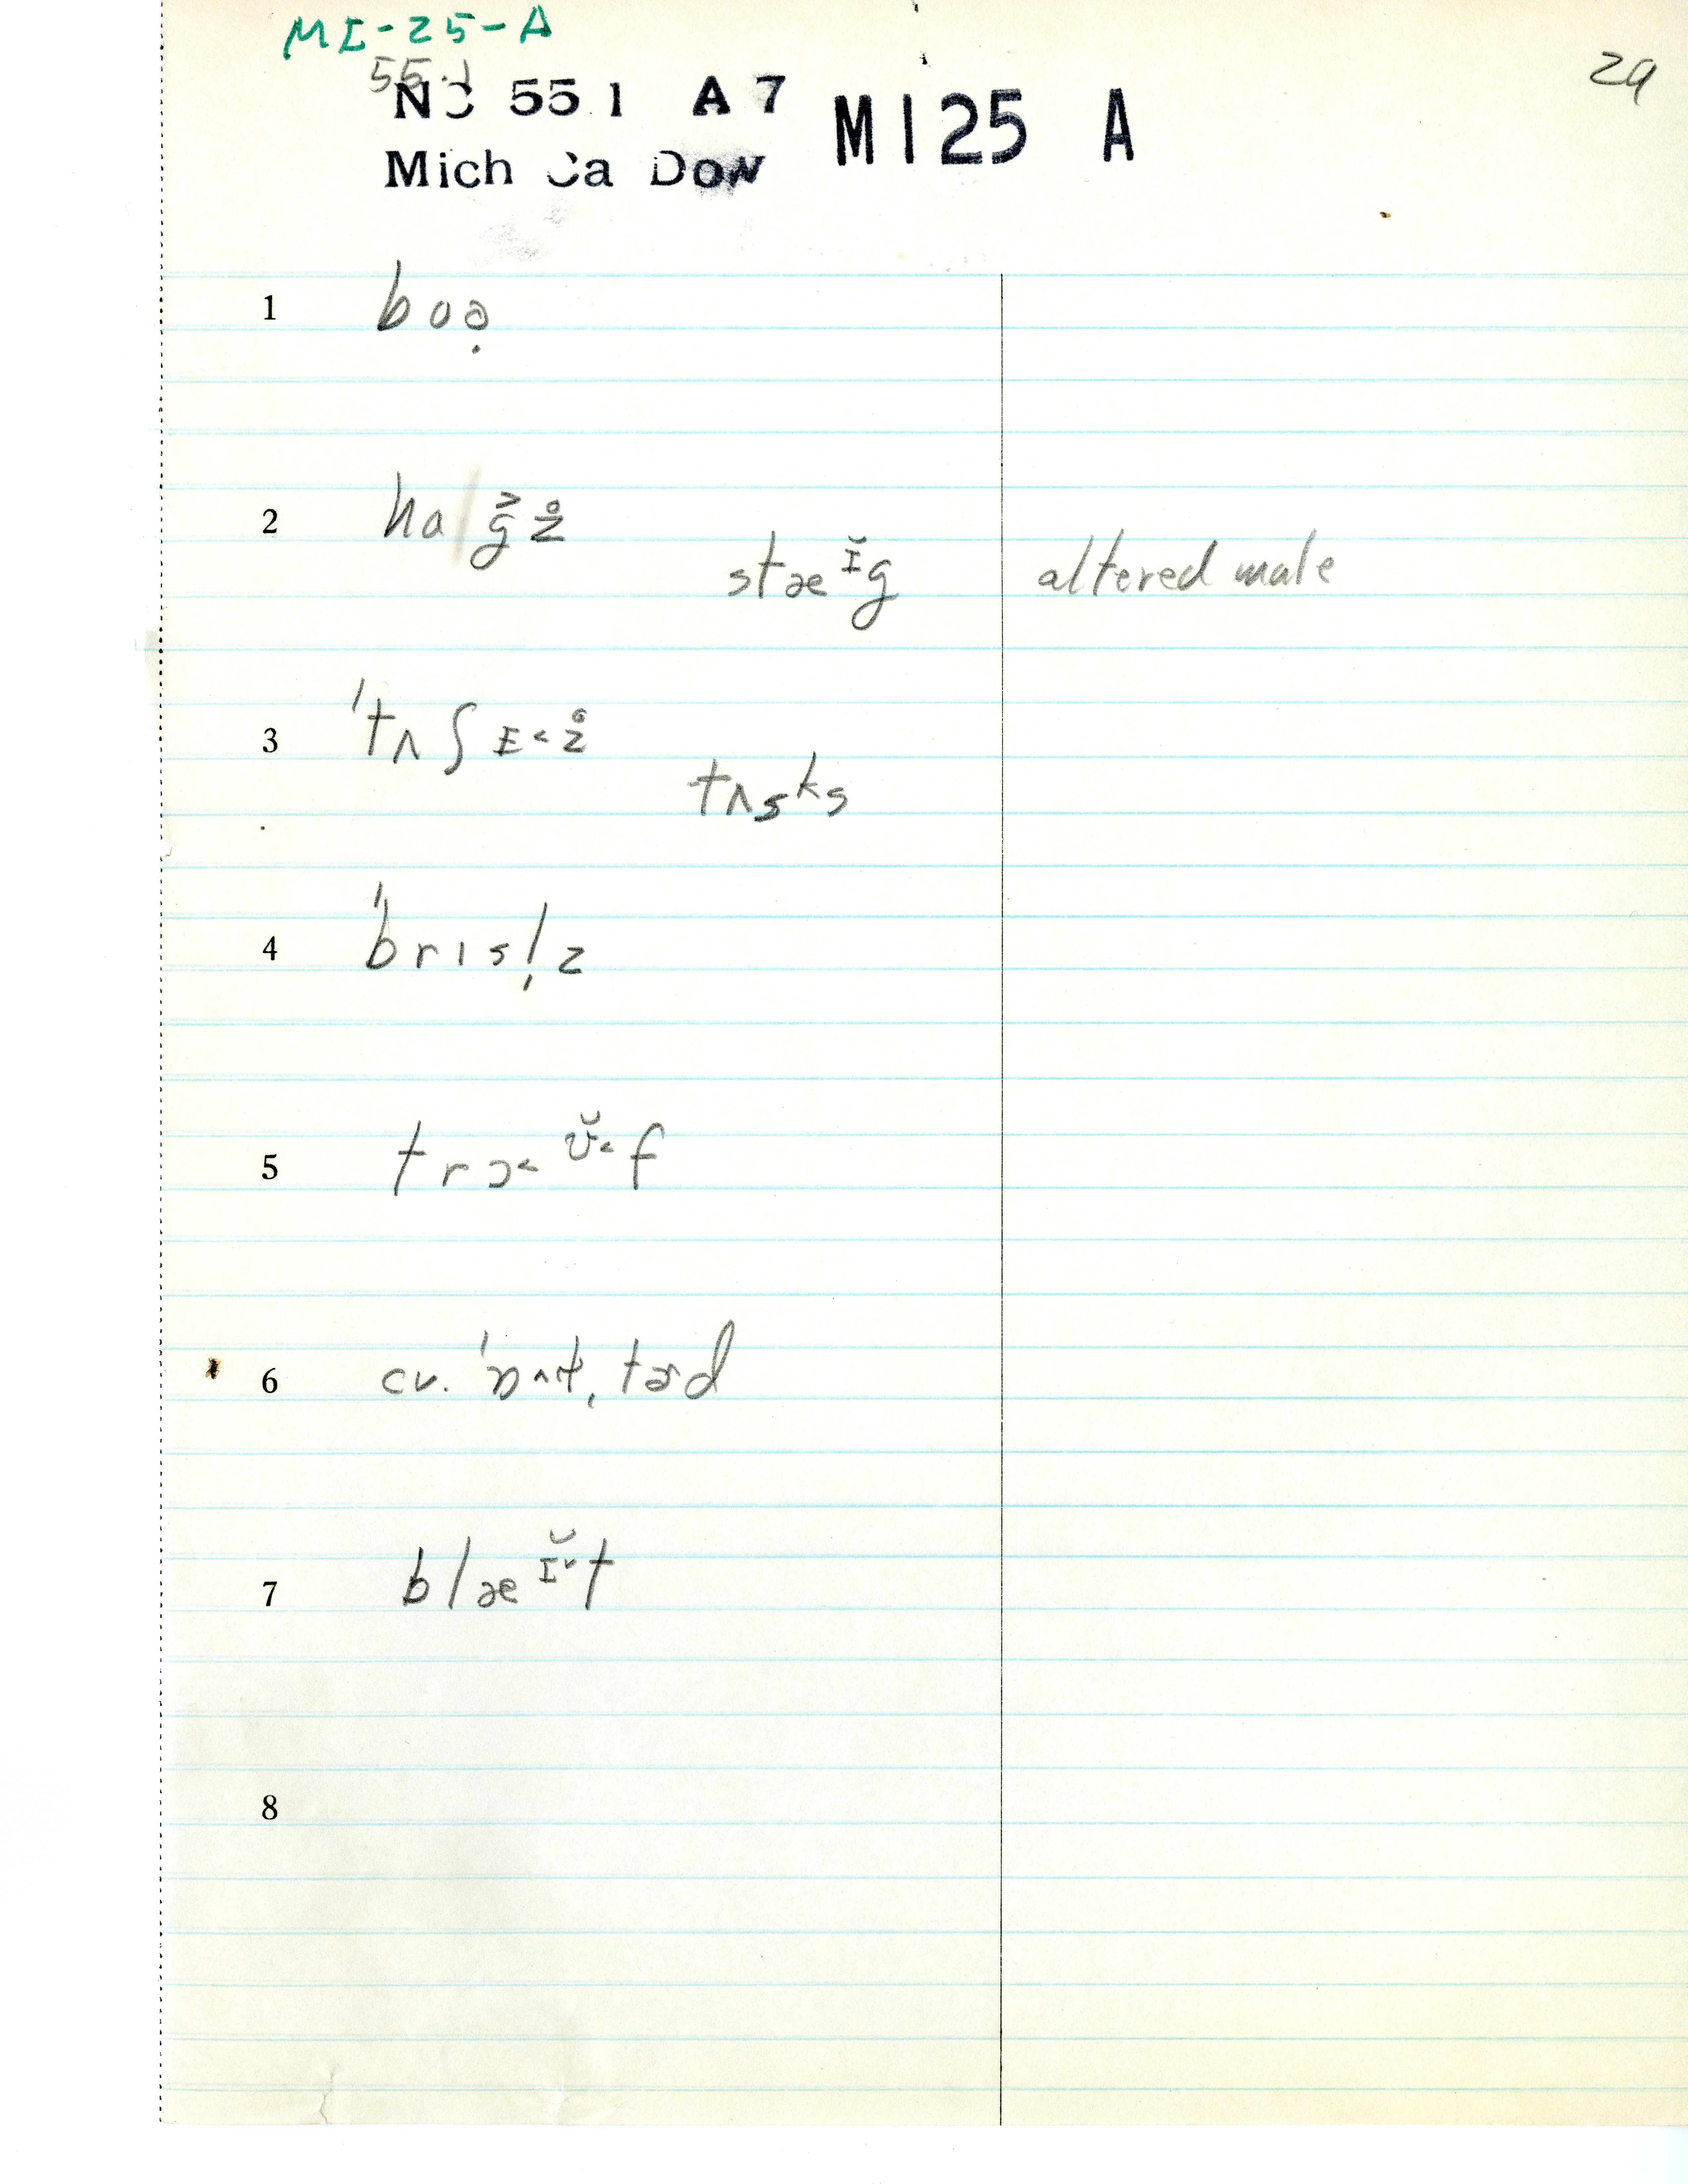 MI-25-A
29
55.1
NC 55 1 A 7 MI 25 A
Mich Ca Dow
1 boə̣
2 hağz̥
stæɪ̆g altered male
3 ˈtʌʃɪ˂z̥
tʌsks
4 ˈbrɪsl̩z
5 trɔ˂ʊ̆˂f
6 cv.
7 blæɪ̆˅t
8